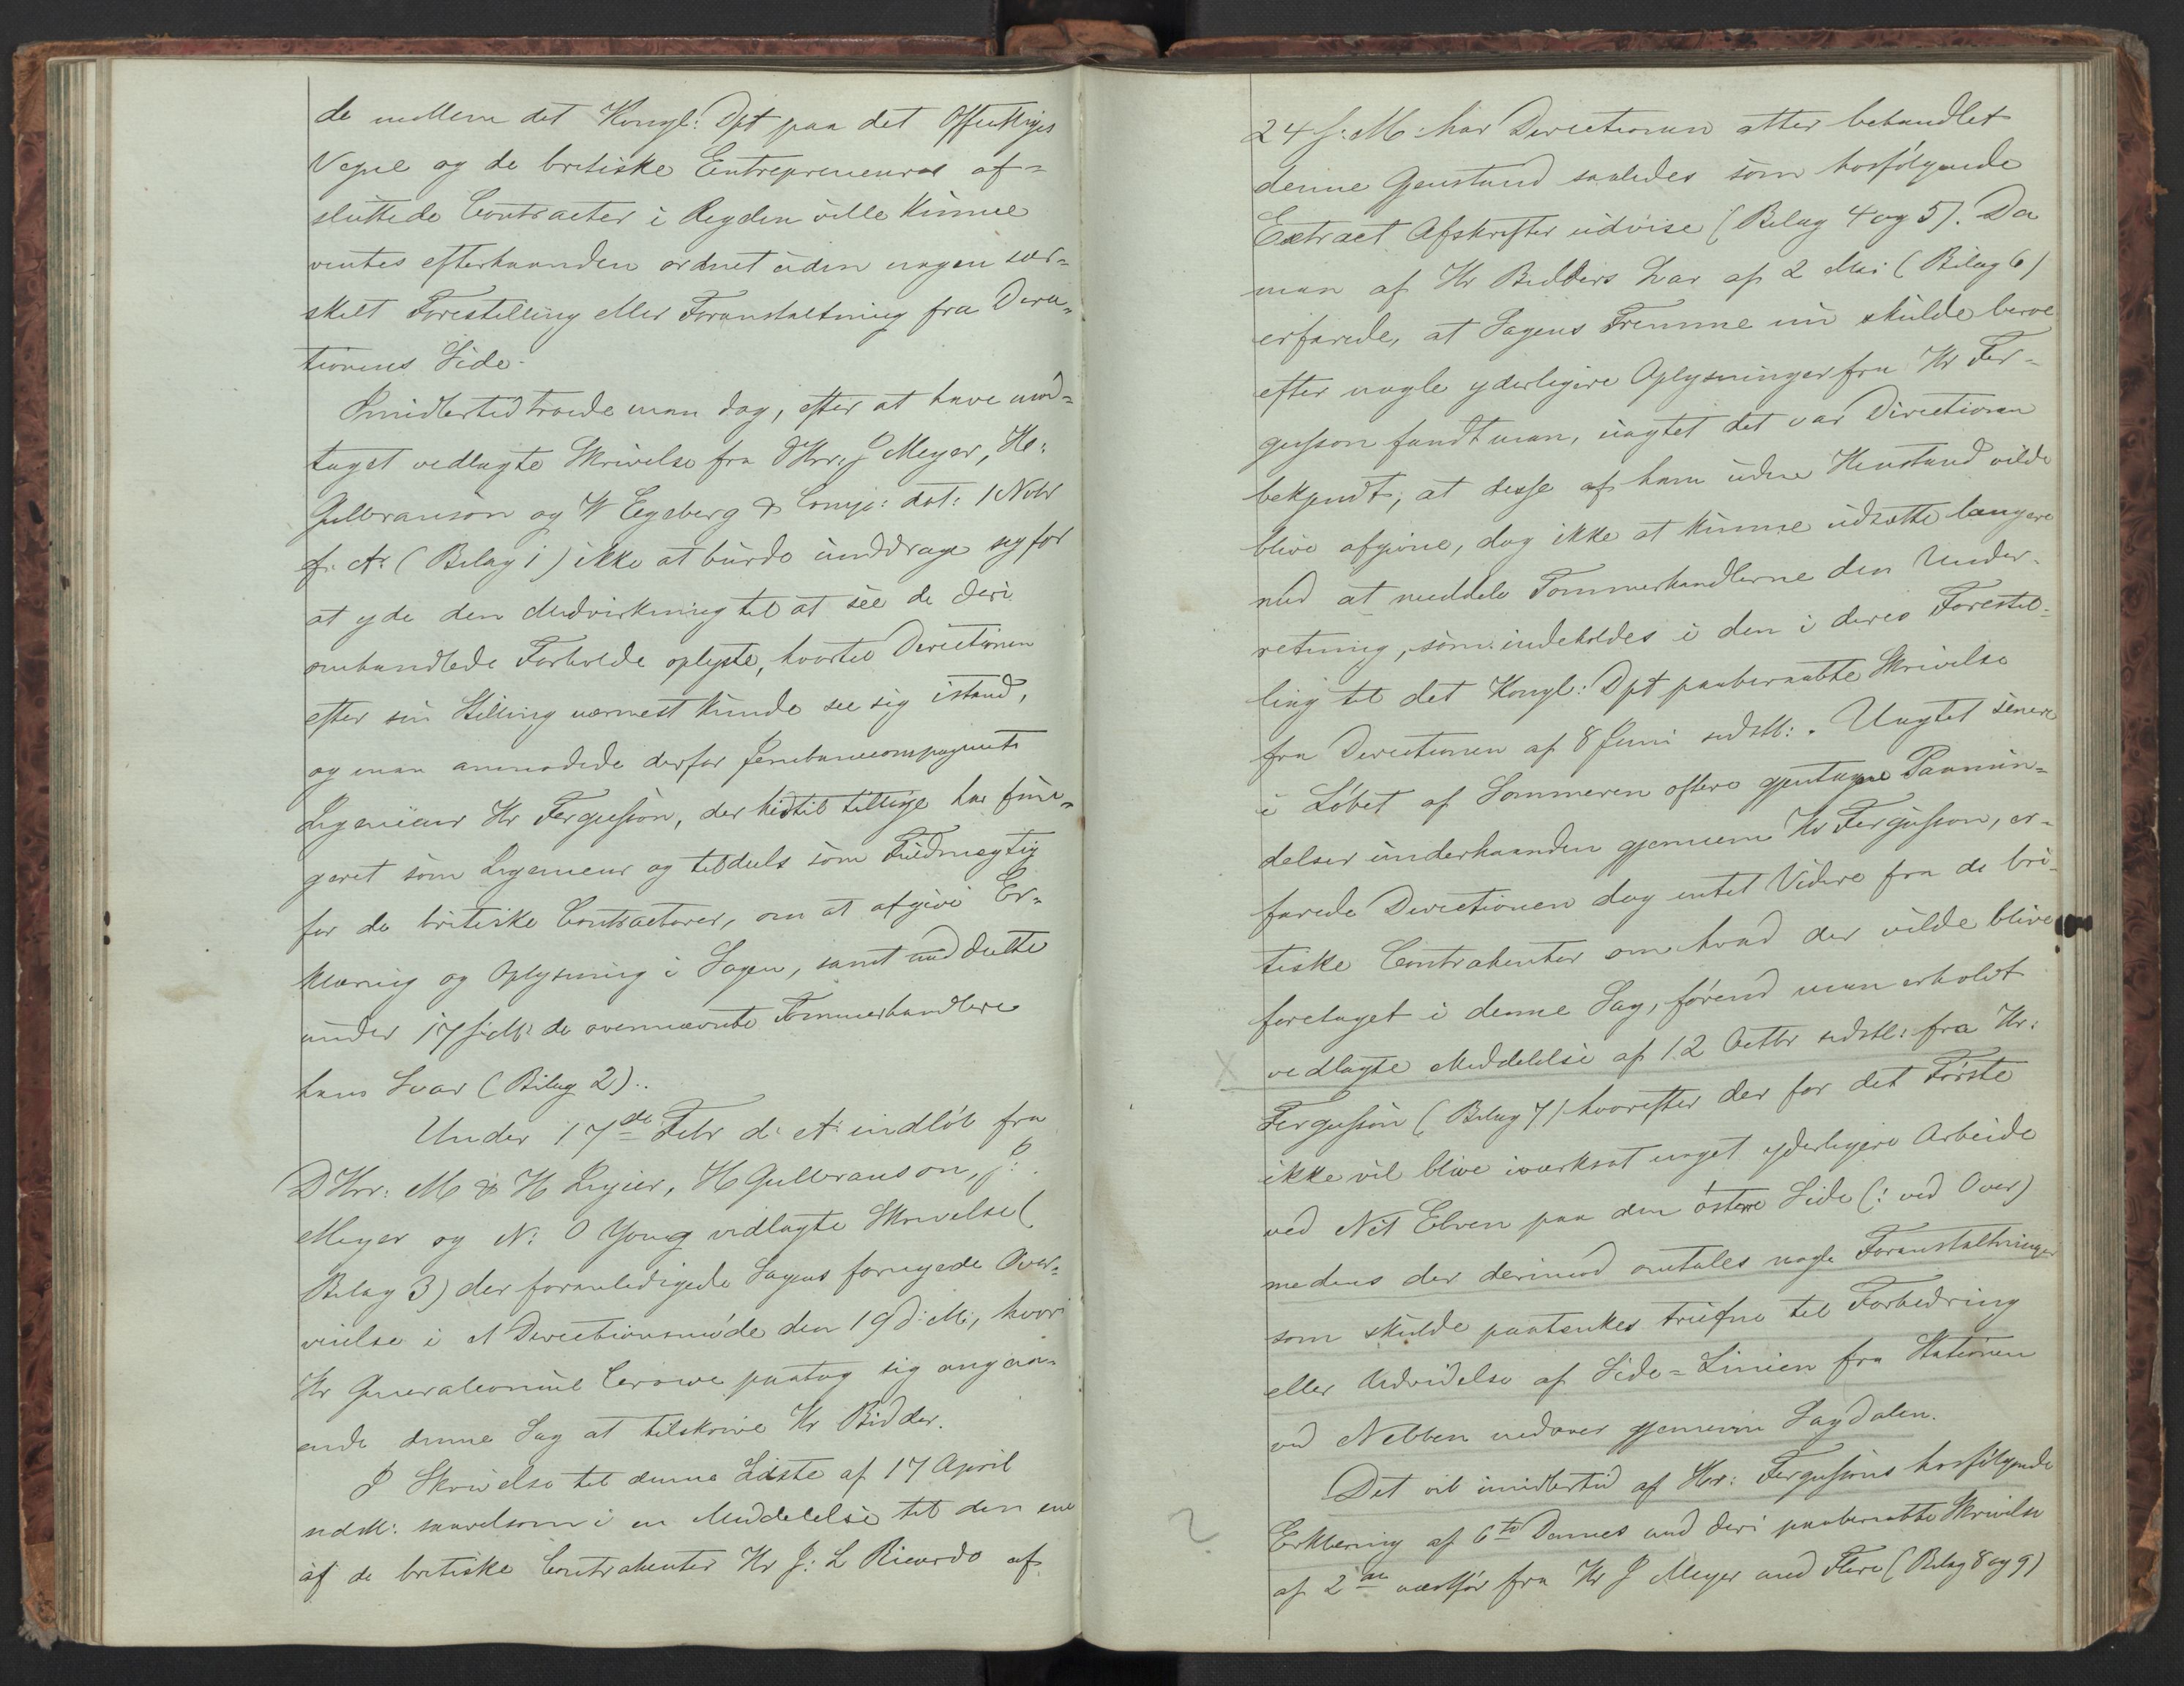 de mellem det Kongl: Dpt paa det Offentliges
Vegne og de britiske Entrepreneurs af=
sluttede Contracter i Regden ville kunne
ventes efterhaanden ordnet uden nogen sær=
skilt Forestilling eller Foranstaltning fra Direc=
tionens Side.
Imidlertid troede man dog, efter at have mod=
taget vedlagte Skrivelse fra DHrr: J Meyer, H:
Gulbranson og W Egeberg & Comp: dat: 1 Novbr
f. A. (Bilag 1) ikke at burde unddrage sig for
at yde den Medvirkning til at see de deri
omhandlede Forholde oplyste, hvortil Directionen
efter sin Stilling nærmest kunde see sig istand,
og man anmodede derfor Jernbanecompagniets
Ingenieur Hr Fergusson, der hidtil tillige har fun=
geret som Ingenieur og tildels som Fuldmægtig
for de britiske Contractorer, om at afgive Er=
klæring og Oplysning i Sagen, samt meddeelte
under 17 s: M: de ovennævnte Tømmerhandlere
hans Svar (Bilag 2)..
Under 17de Febr d: A: indløb fra
DHrr: M & H Jngier, H Gulbranson, J:
Meyer og N: O Young vedlagte Skrivelse (
Bilag 3) der foranledigede Sagens fornyede Over=
veielse i et Directionsmøde den 19 d: M:, hvori
Hr Generalconsul Crowe paatog sig angaa=
ende denne Sag at tilskrive Hr Bidder.
I Skrivelse til denne Sidste af 17 April
sidstl: saavelsom i en Meddelelse til den ene
af de britiske Contrahenter Hr J: L Ricardo af
24 s: M: har Directionen atter behandlet
denne Gjenstand saaledes som hosfølgende
Extract Afskrifter udvise (Bilag 4 og 5). Da
man af Hr Bidders Svar af 2 Mai (Bilag 6)
erfarede, at Sagens Fremme nu skulde beroe
efter nogle yderligere Oplysninger fra Hr Fer=
gusson fandt man, uagtet det var Directionen
bekjendt, at disse af ham uden Henstand vilde
blive afgivne, dog ikke at kunne udsætte længere
med at meddele Tømmerhandlerne den Under=
retning, som indeholdes i den i deres Forestil=
ling til det Kongl: Dpt paaberaabte Skrivelse
fra Directionen af 8 Juni sidstl: . Uagtet senere
i Løbet af Sommeren oftere gjentagne Paamin=
delser underhaanden gjennem Hr Fergusson, er=
farede Directionen dog intet Videre fra de bri=
tiske Contrahenter om hvad der vilde blive
foretaget i denne Sag, førend man erholdt
vedlagte Meddelelse af 12 Octbr sidstl: fra Hr:
Fergusson (Bilag 7) hvorefter der for det Første
ikke vil blive iværksat noget yderligere Arbeide
ved Nit Elven paa den østere Side (: ved Over)
medens der derimod omtales nogle Foranstaltninger
som skulde paatænkes trufne til Forbedring
eller Udvidelse af Side=Linien fra Stationen
ved Nebben nedover gjennem Sagdalen.
Det vil imidlertid af Hr: Fergussons hosfølgende
Erklæring af 6te Dennes med deri paaberaabte Skrivelse
af 2den næstfør fra Hr J Meyer med Flere (Bilag 8 og 9)